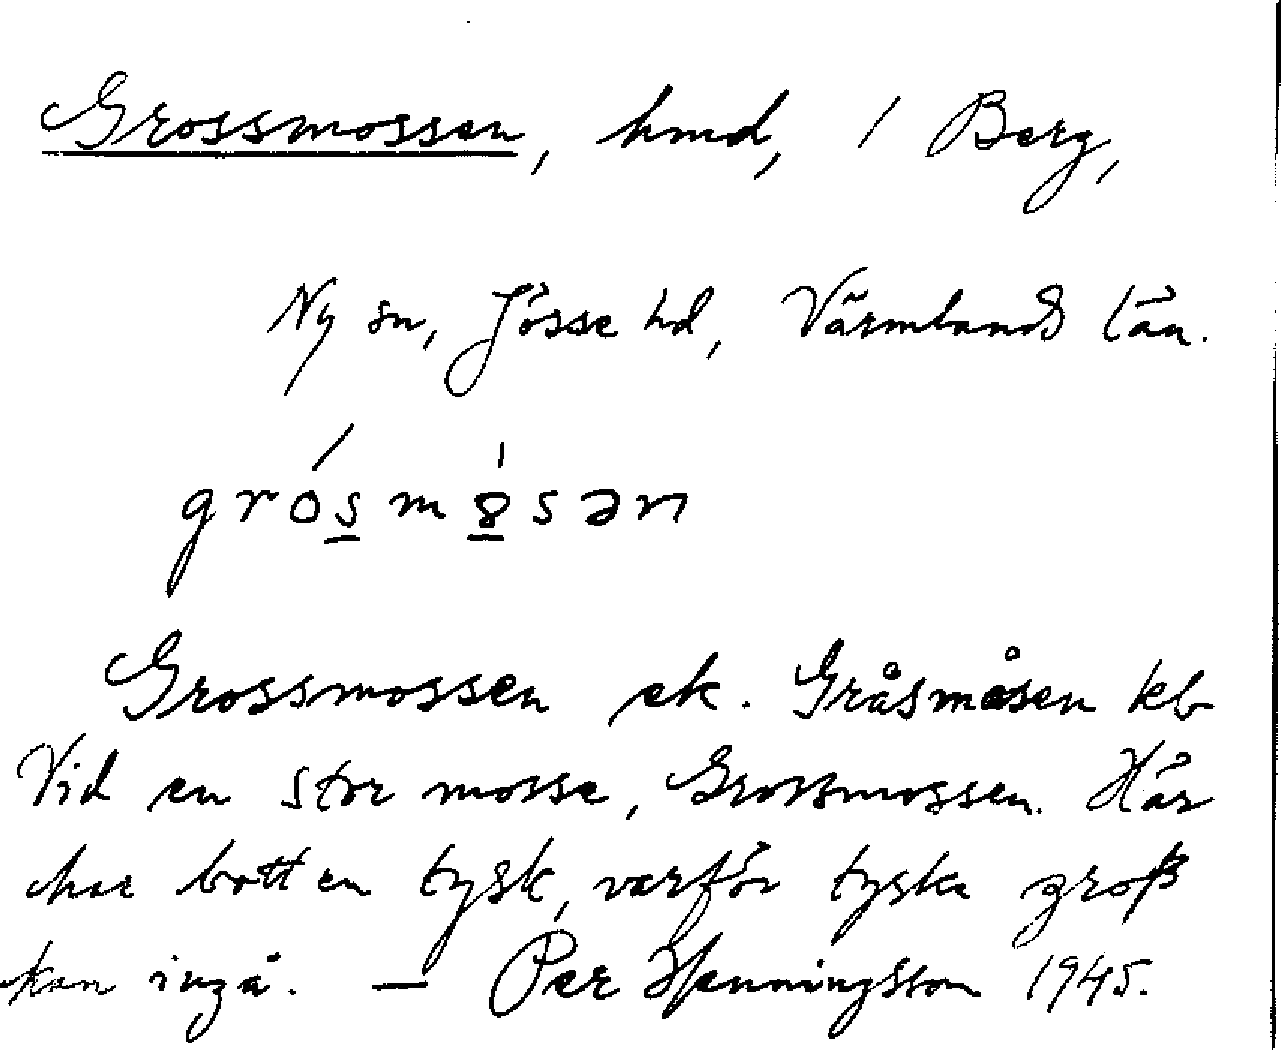 Grossmossen, hmd, i Berg,
Ny sn, Jösse hd, Värmlands län.
grósmȣsən
Grossmossen ek. Gråsmåsen kb
Vid en stor mosse, Grossmossen. Här
har bott en tysk, varför tyska groß
kan ingå. — Per Henningsson 1945.